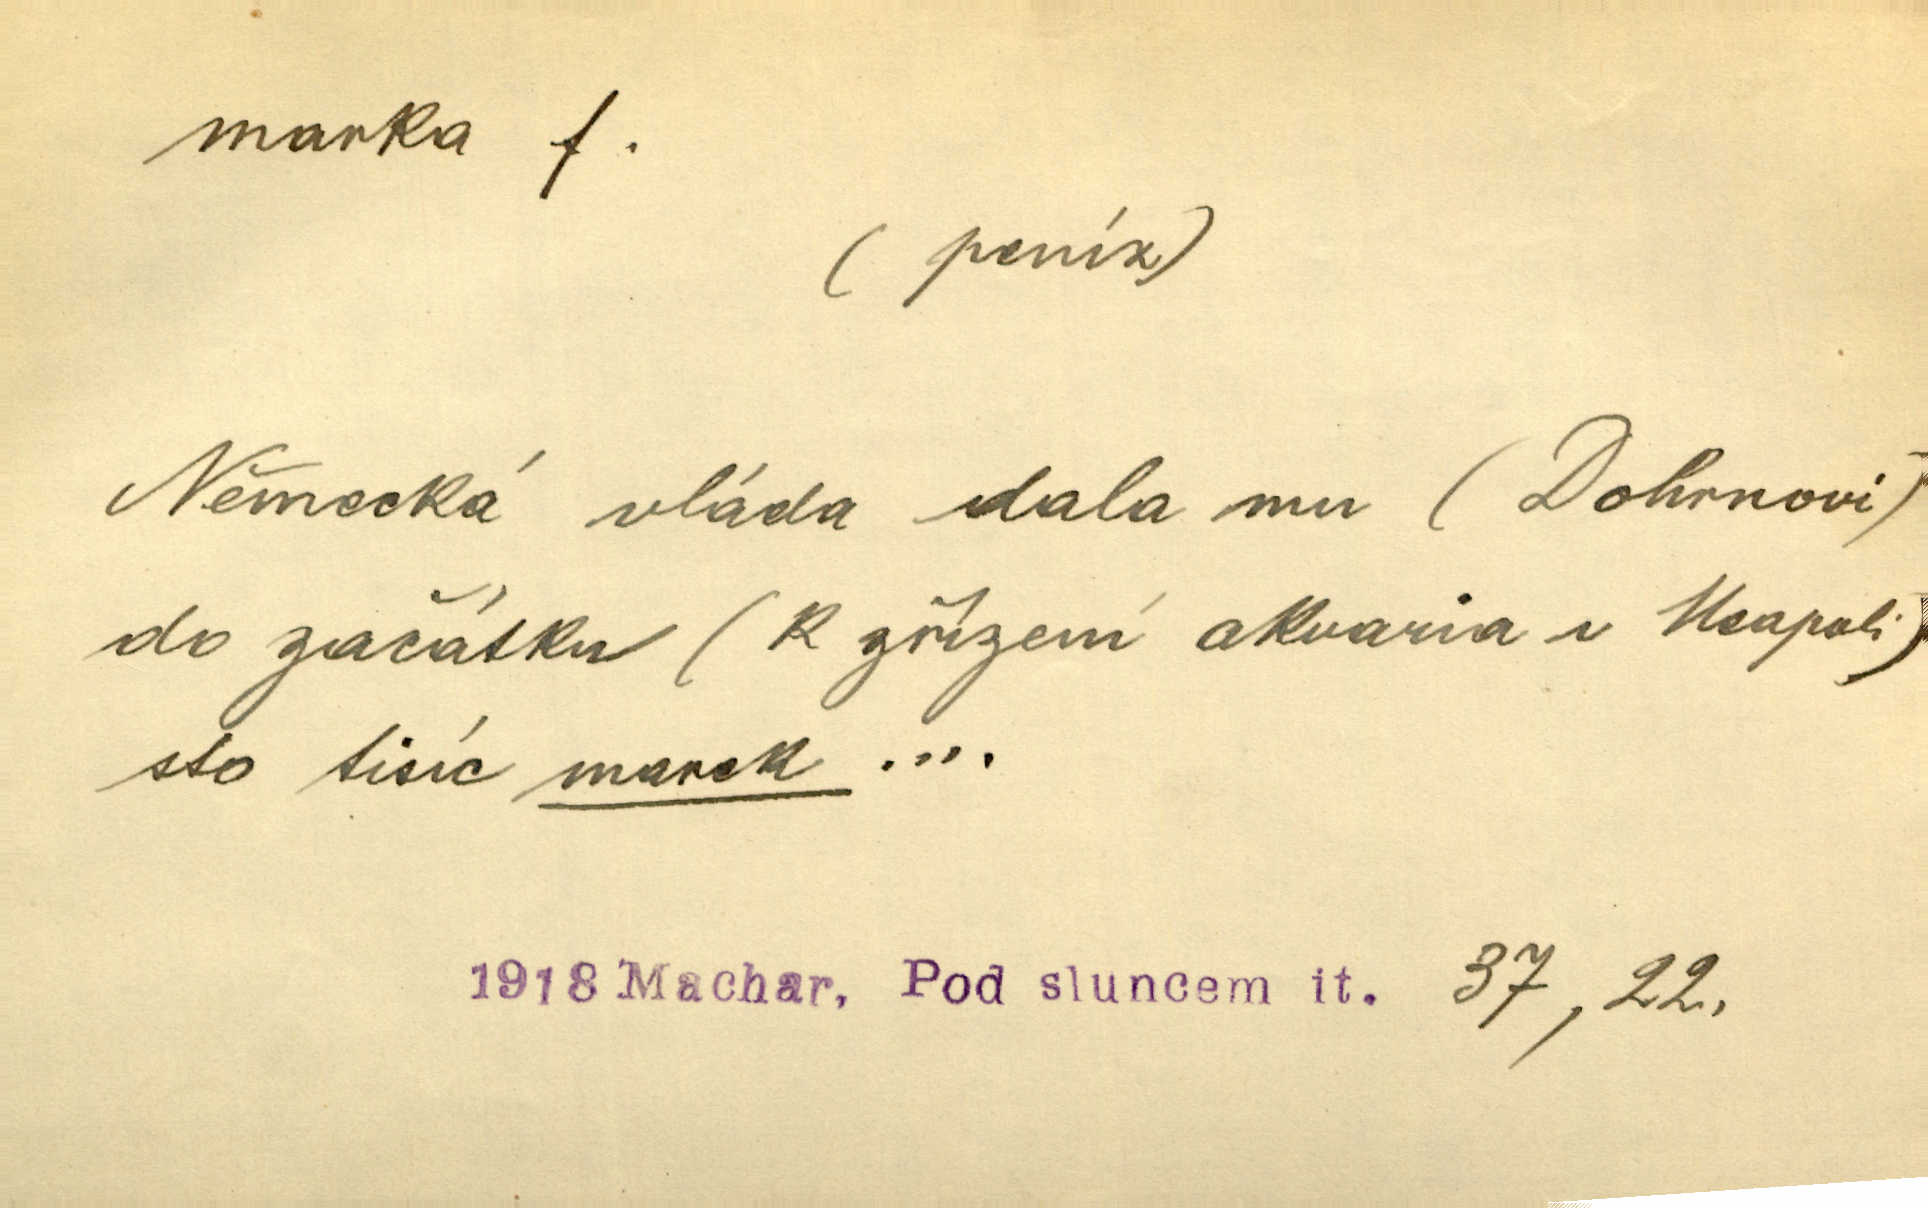 marka f.
(peníz)
Německá vláda dala mu (Dohrnovi)
do začátku (k zřízení akvaria v Neapoli)
sto tisíc marek ....
1918 Machar, Pod sluncem it. 37, 22.